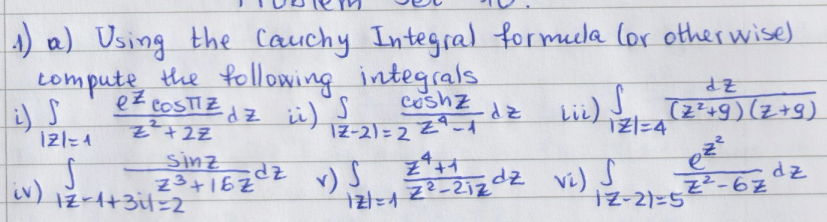 Problem Set 10.
1) a) Using the Cauchy Integral formula (or otherwise)
compute the following integrals
i) ∫_{|z|=1} (e^z cosπz)/(z²+2z) dz ii) ∫_{|z-2|=2} (coshz)/(z⁴-1) dz iii) ∫_{|z|=4} dz/((z²+9)(z+9))
iv) ∫_{|z-1+3i|=2} (sinz)/(z³+16z) dz v) ∫_{|z|=1} (z⁴+1)/(z²-2iz) dz vi) ∫_{|z-2|=5} e^{z²}/(z²-6z) dz